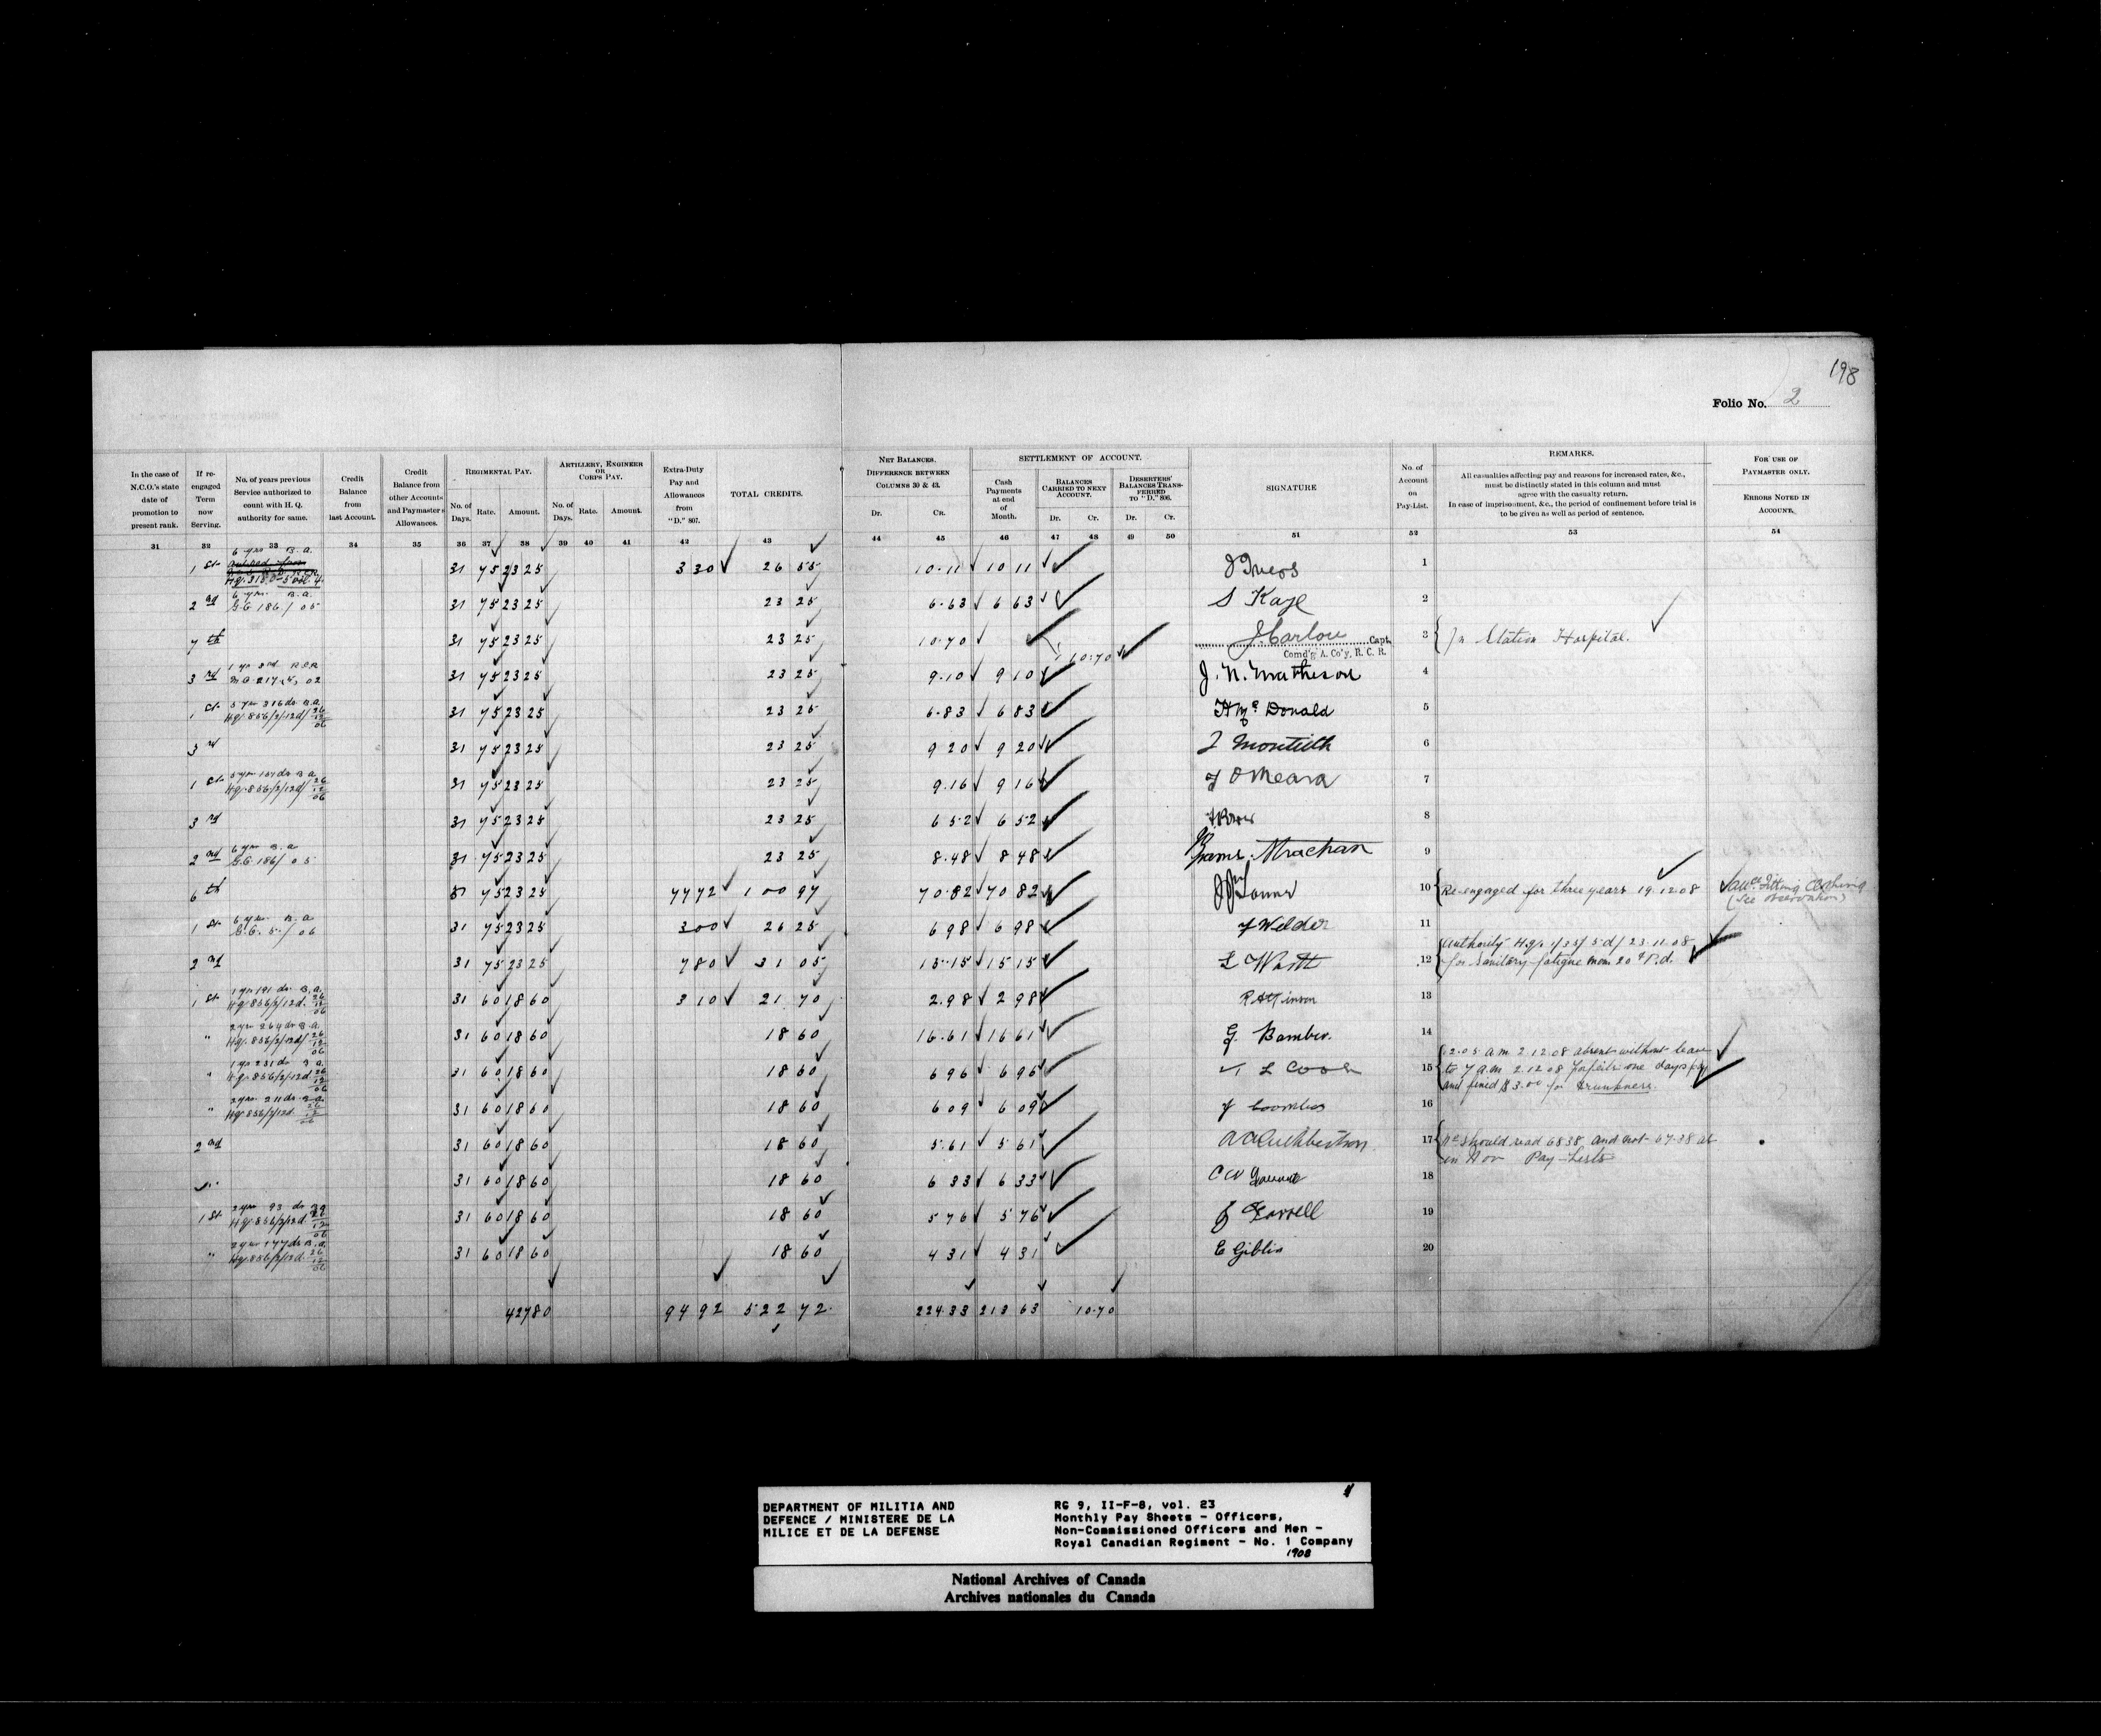 198
Folio No. 2
In the case of N.C.O.'s state date of promotion to present rank.
If re-engaged Term now Serving.
No. of years previous Service authorized to count with H. Q. authority for same.
Credit Balance from last Account.
Credit Balance from other Accounts and Paymaster's Allowances.
REGIMENTAL PAY.
No. of Days. Rate. Amount.
ARTILLERY, ENGINEER OR CORPS PAY.
No. of Days. Rate. Amount.
Extra-Duty Pay and Allowances from "D." 807.
TOTAL CREDITS.
NET BALANCES.
DIFFERENCE BETWEEN COLUMNS 30 & 43.
Dr. Cr.
SETTLEMENT OF ACCOUNT.
Cash Payments at end of Month.
BALANCES CARRIED TO NEXT ACCOUNT.
Dr. Cr.
DESERTERS' BALANCES TRANSFERRED TO "D." 806.
Dr. Cr.
SIGNATURE
No. of Account on Pay-List.
REMARKS.
All casualties affecting pay and reasons for increased rates, &c., must be distinctly stated in this column and must agree with the casualty return.
In case of imprisonment, &c., the period of confinement before trial is to be given as well as period of sentence.
FOR USE OF PAYMASTER ONLY.
ERRORS NOTED IN ACCOUNT.
31 32 33 34 35 36 37 38 39 40 41 42 43 44 45 46 47 48 49 50 51 52 53 54
1st 6 yrs B.a. 31 75 23 25 3 30 26 55 10.11 10 11 1
2nd 6 yrs. B.a. G.O. 186/05 31 75 23 25 23 25 6.63 6 63 S Kaye 2
7th 31 75 23 25 23 25 10.70 10.70 Capt. 3 In Station Hospital.
Comd'g A. Co'y, R. C. R.
3rd 31 75 23 25 23 25 9.10 9 10 J. N. Matheson 4
1st 5 yrs 316 ds B.a. Hq. 856/2/12d/ 26 12 06 31 75 23 25 23 25 6.83 6 83 H Mc Donald 5
3rd 31 75 23 25 23 25 9 20 9 20 6
1st Hq. 856/2/12d/ 26 12 06 31 75 23 25 23 25 9.16 9 16 J O Meara 7
3rd 31 75 23 25 23 25 6 52 6 52 8
2nd 6 yrs B.a G.O. 186/05 31 75 23 25 23 25 8.48 8 48 Strachan 9
6th 31 75 23 25 77 72 1 00 97 70.82 70 82 10 Re-engaged for three years 19.12.08 (See observation)
1st 6 yrs. B.a G.O. 5/06 31 75 23 25 3 00 26 25 6 98 6 98 J Welder 11
2nd 31 75 23 25 7 80 31 05 15.15 15 15 12 Authority H.q. 1/35/5d/23.11.08
for Sanitary fatigue man 20 c P.d.
1st 1 yr 191 ds. B.a. Hq. 856/2/12d. 26 12 06 31 60 18 60 3 10 21 70 2.98 2 98 R Atkinson 13
" 2 yrs 264 ds B.a. Hq. 856/2/12d/ 26 12 06 31 60 18 60 18 60 16.61 16 61 G. Bamber. 14
" 1 yr 231 ds B.a. Hq. 856/2/12d 26 12 06 31 60 18 60 18 60 6 96 6 96 L Cook 15 12.05 a.m 2.12.08 absent without leave
to 7 a.m 2.12.08 Forfeits one days pay
and fined $3.00 for drunkness.
" 2 yrs. 211 ds. B.a. Hq. 856/2/12d. 31 60 18 60 18 60 6 09 6 09 J Coombes 16
2nd 31 60 18 60 18 60 5.61 5 61 A A Cuthbertson 17 No should read 6838 and not 6738 as
in Nov Pay-Lists
" 31 60 18 60 18 60 6 33 6 33 18
1st 2 yrs 93 ds Hq. 856/2/12d. 31 60 18 60 18 60 5 76 5 76 Farrell 19
" 2 yrs 177 ds B.a. Hq. 856/2/12d. 26 12 06 31 60 18 60 18 60 4 31 4 31 E Giblin 20
427 80 94 92 522 72 224.33 213 63 10.70
DEPARTMENT OF MILITIA AND
DEFENCE / MINISTERE DE LA
MILICE ET DE LA DEFENSE
RG 9, II-F-8, vol. 23
Monthly Pay Sheets - Officers,
Non-Commissioned Officers and Men -
Royal Canadian Regiment - No. 1 Company
1908
National Archives of Canada
Archives nationales du Canada